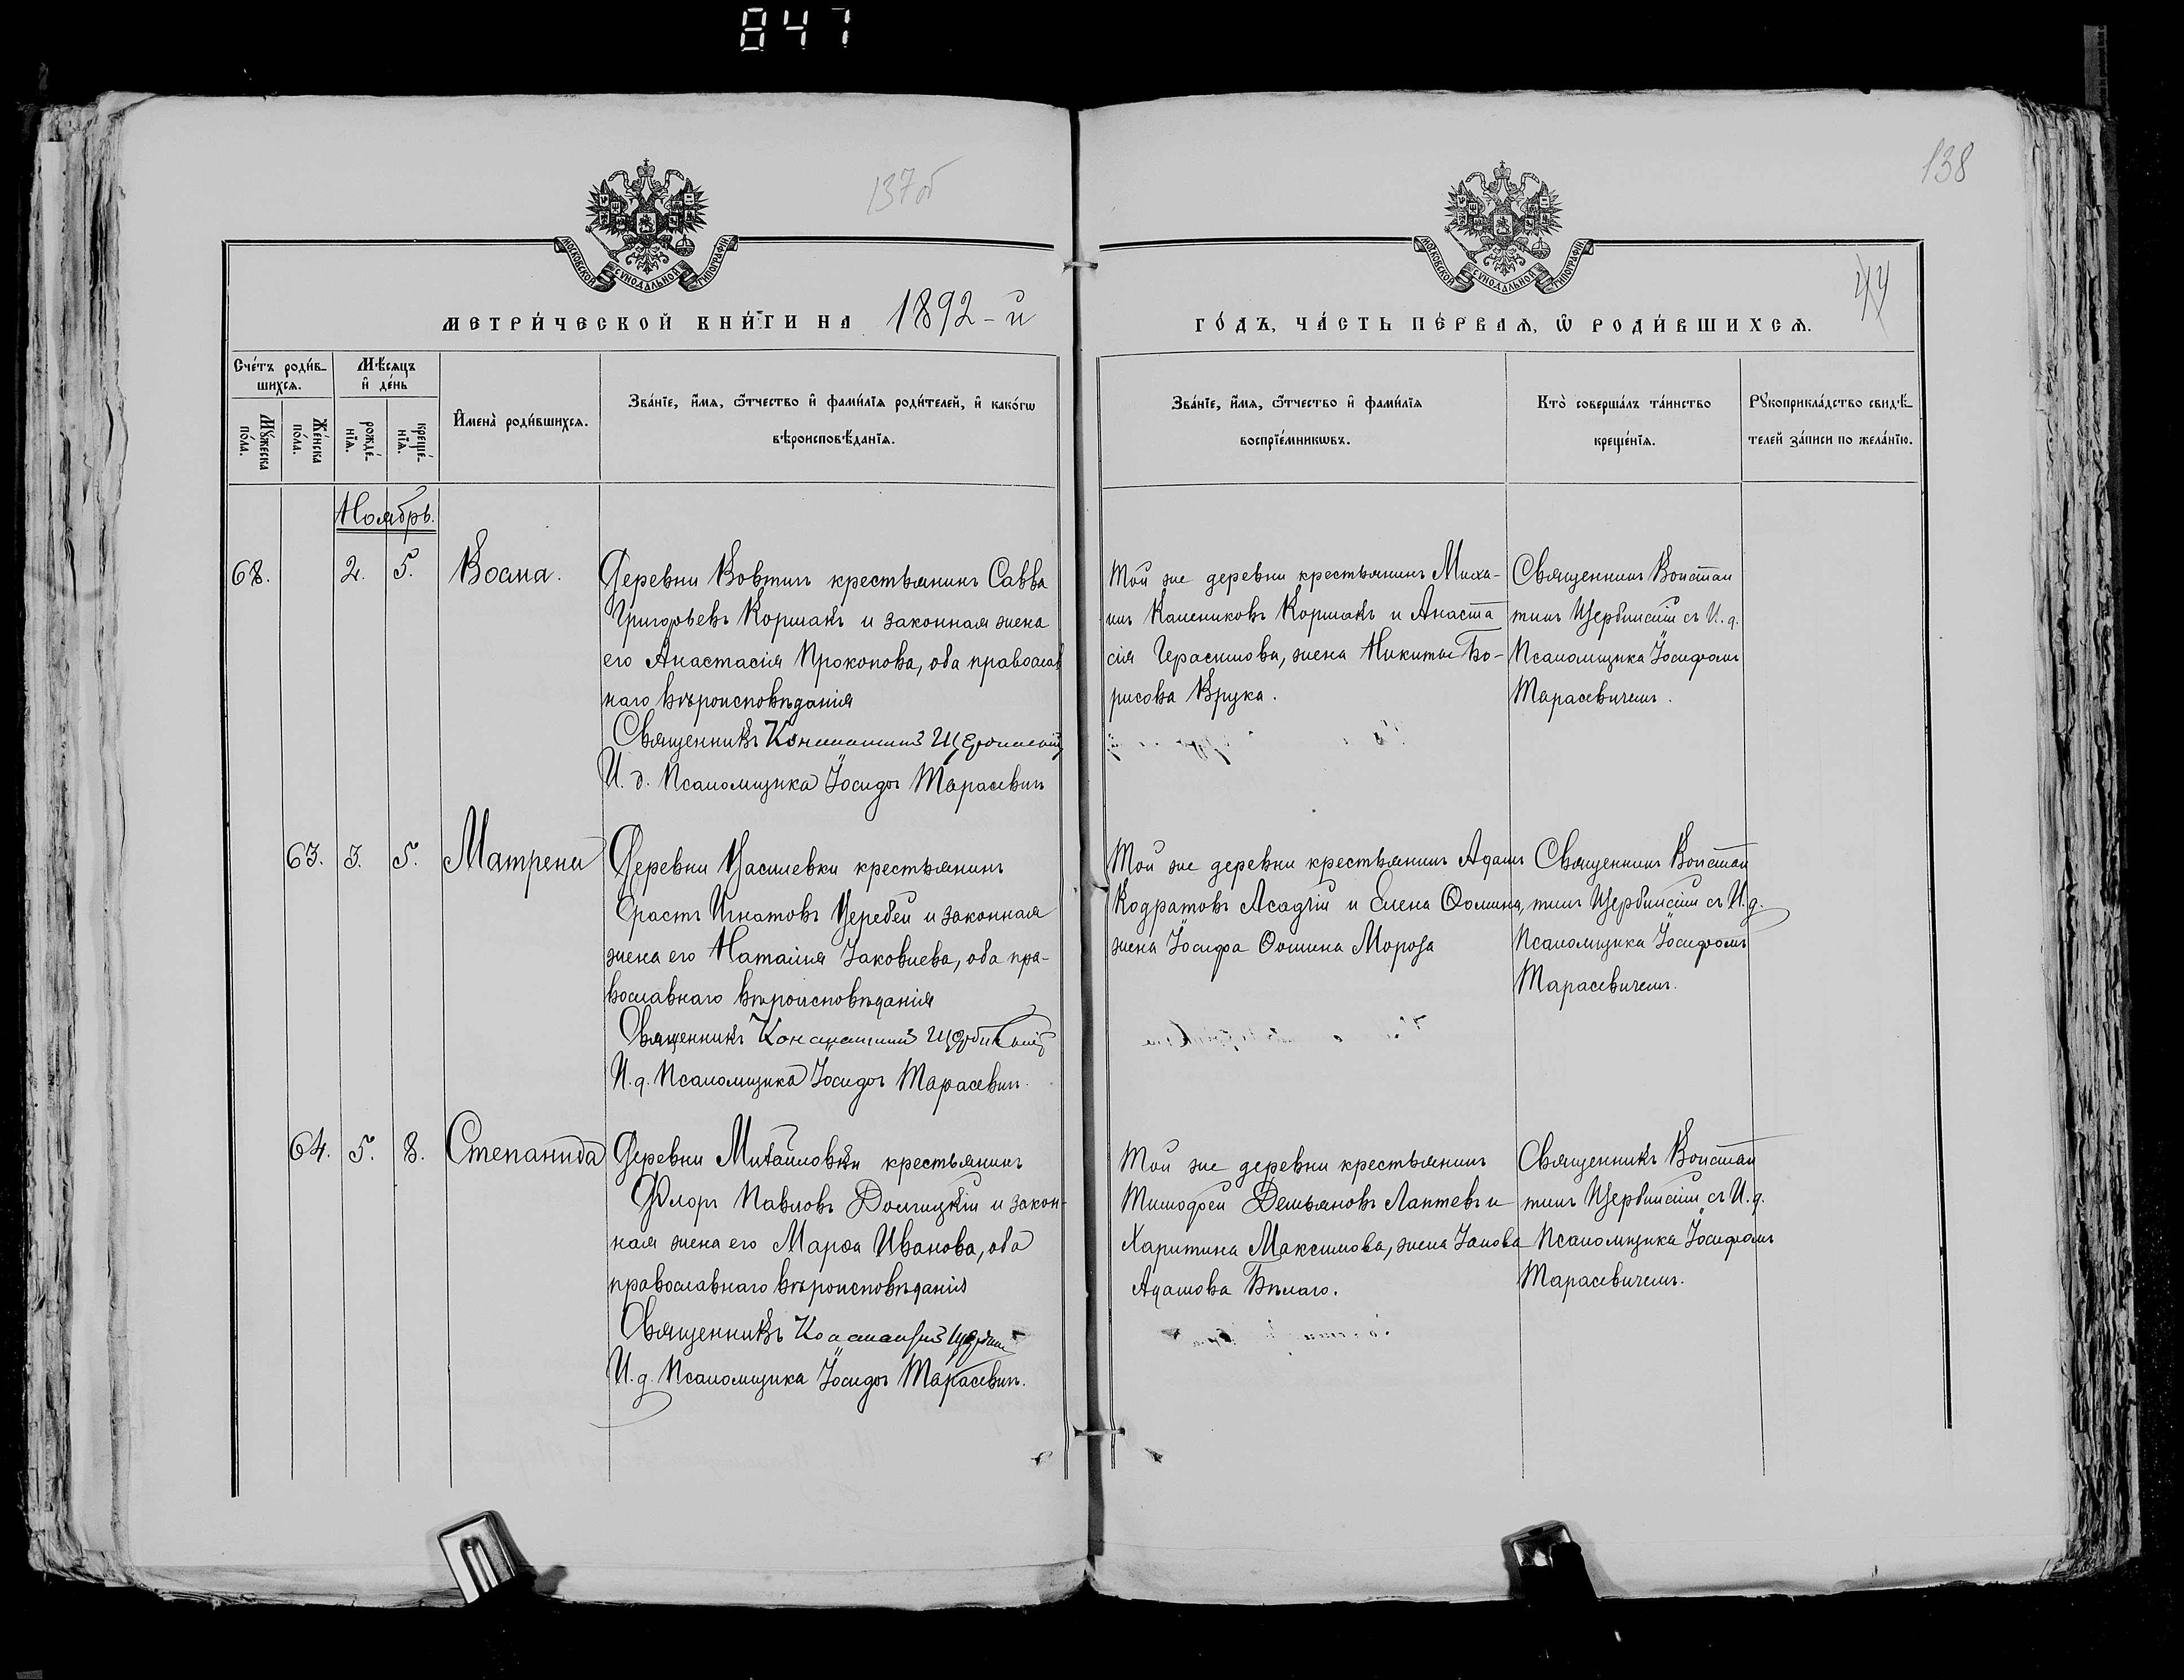 847
137об
138
44
МОСКОВСКОЙ СѴНОДАЛЬНОЙ ТИПОГРАФІИ
МОСКОВСКОЙ СѴНОДАЛЬНОЙ ТИПОГРАФІИ
МЕТРИ́ЧЕСКОЙ КНИ́ГИ НА 1892-й
ГО́ДЪ, ЧА́СТЬ ПЕ́РВАѦ, Ѽ РОДИ́ВШИХСѦ.
Сче́тъ роди́в-
шихсѧ.
Мѣ́сяцъ
и҆ де́нь
Мꙋ́жеска по́ла.
Же́нска по́ла.
рожде́-нїѧ.
креще́-нїѧ.
И҆мена̀ роди́вшихсѧ.
Зва́нїе, и҆́мѧ, ѻ҆́тчество и҆ фами́лїѧ роди́телей, и҆ како́гѡ
вѣроисповѣ́данїѧ.
Зва́нїе, и҆́мѧ, ѻ҆́тчество и҆ фами́лїѧ
воспрїе́мникѡвъ.
Кто̀ соверша́лъ та́инство
креще́нїѧ.
Рꙋкоприкла́дство свидѣ́-
телей за́писи по жела́нїю.
Ноябрь.
68. 2. 5. Косма.
Деревни Ковтичъ крестьянинъ Савва
Григорьевъ Коршакъ и законная жена
его Анастасія Прокопова, оба православ
наго вѣроисповѣданія
Священникъ Константинъ Щербинскій
И. д. Псаломщика Іосифъ Тарасевичъ
Той же деревни крестьянинъ Миха-
илъ Калениковъ Коршакъ и Анаста
сія Герасимова, жена Никиты Бо-
рисова Крука.
Священникъ Констан
тинъ Щербинскій съ И. д.
Псаломщика Іосифомъ
Тарасевичемъ.
63. 3. 5. Матрена
Деревни крестьянинъ
Ѳрастъ Игнатовъ Церебей и законная
жена его Наталія Іаковлева, оба пра-
вославнаго вѣроисповѣданія
Священникъ Константинъ Щербинскій
И. д. Псаломщика Іосифъ Тарасевичъ.
Той же деревни крестьянинъ Адамъ
Кодратовъ Асадчій и Елена Ѳомина,
жена Іосифа Ѳомина Мороза
Священникъ Констан
тинъ Щербинскій съ И. д.
Псаломщика Іосифомъ
Тарасевичемъ.
64. 5. 8. Степанида
Деревни Михайловки крестьянинъ
Флоръ Павловъ Долгицкій и закон-
ная жена его Марѳа Иванова, оба
православнаго вѣроисповѣданія
Священникъ Константинъ Щербинскій
И. д. Псаломщика Іосифъ Тарасевичъ.
Той же деревни крестьянинъ
Тимофей Демьяновъ Лаптевъ и
Харитина Максимова, жена Іакова
Адамова Бѣлаго.
Священникъ Констан
тинъ Щербинскій съ И. д.
Псаломщика Іосифомъ
Тарасевичемъ.